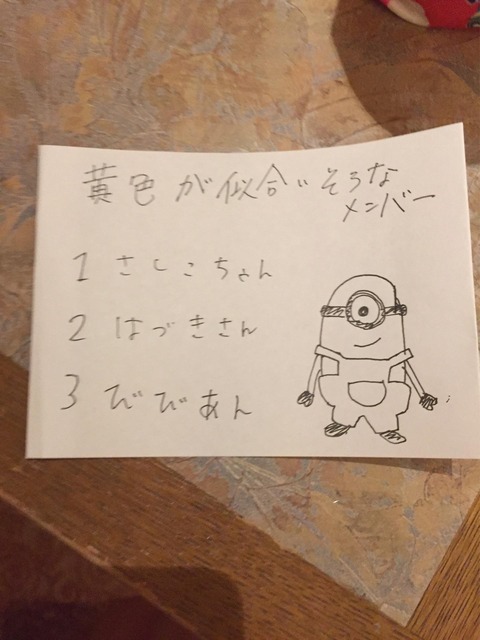 黄色が似合いそうな
メンバー
1 さしこちゃん
2 はづきさん
3 びびあん